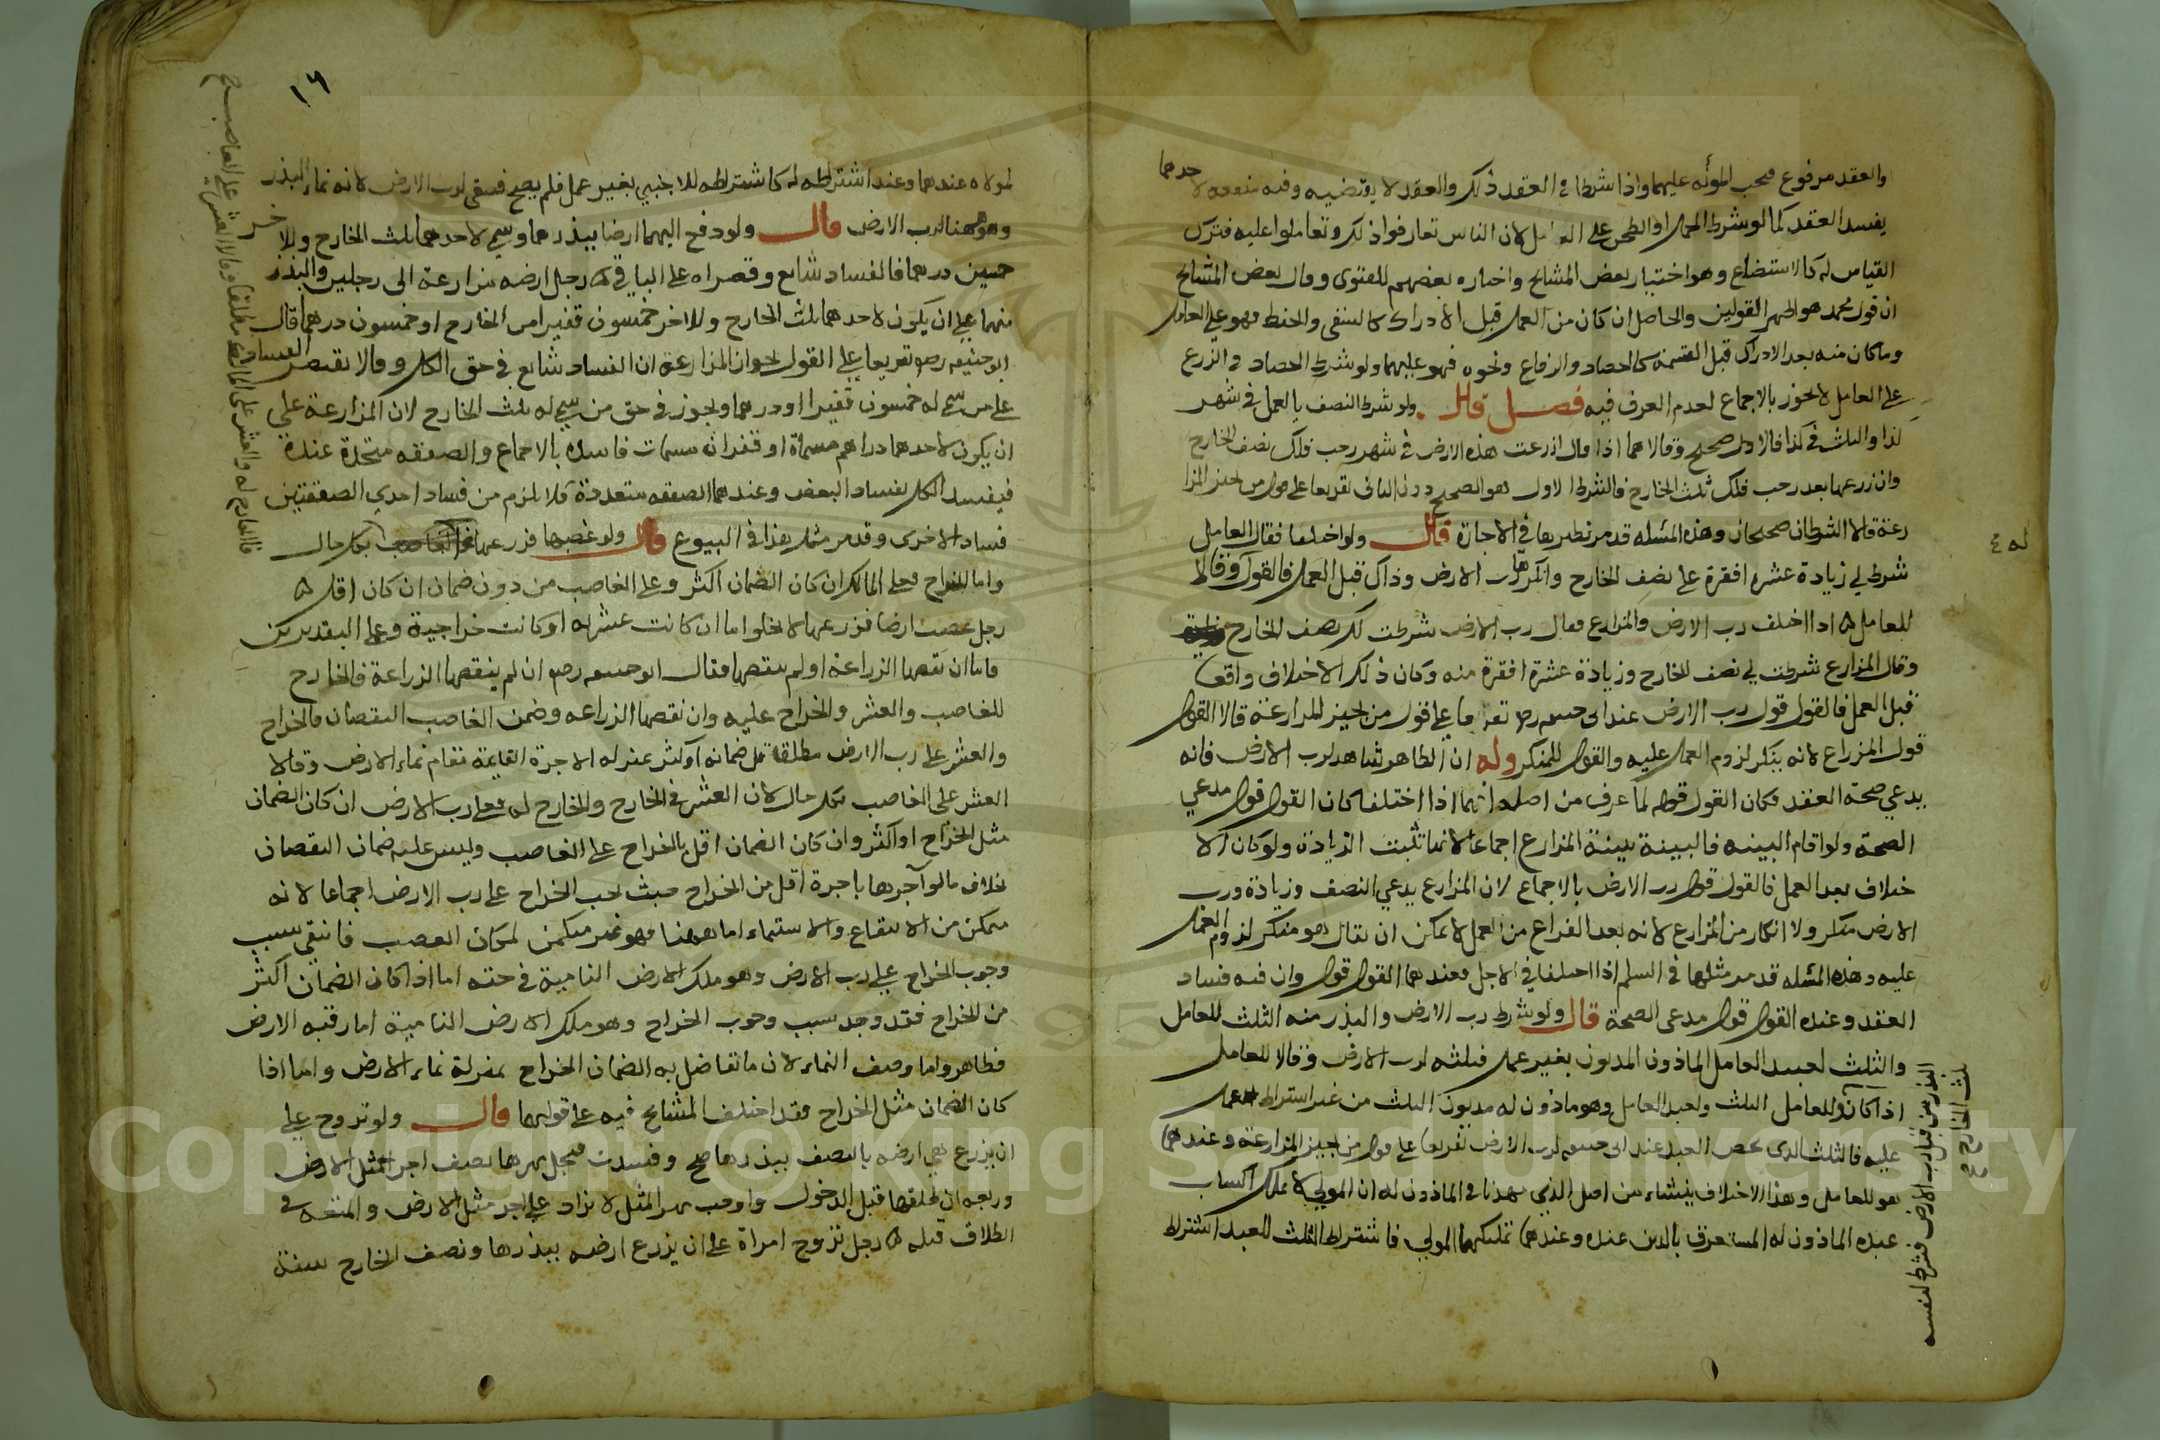 والعقد مرفوع فتجب المؤنة عليهما واذا شرطا في العقد ذلك والعقد لا يقتضيه وفيه منفعة لاحدهما
يفسد العقد كما لو شرط الحمل او الطحن على العامل لان الناس تعارفوا ذلك وتعاملوا عليه فترك
القياس له كالاستصناع وهو اختيار بعض المشايخ واختاره بعضهم للفتوى وقال بعض المشايخ
ان قول محمد هو اظهر القولين والحاصل ان كان من العمل قبل الادراك كالسقي والحفظ فهو على العامل
وما كان منه بعد الادراك قبل القسمة كالحصاد والرفاع ونحوه فهو عليهما ولو شرط الحصاد في الزرع
على العامل لا يجوز بالاجماع لعدم العرف فيه فصل قال ولو شرط النصف بالعمل في شهر
كذا والثلث في كذا فالاول صحيح وقالا هما اذا قال ازرعت هذه الارض في شهر رجب فلك نصف الخارج
وان زرعها بعد رجب فلك ثلث الخارج فالشرط الاول هو الصحيح دون الثاني تفريعا على قول من يجيز المزا
رعة وقالا الشرطان صحيحان وهذه المسئلة قد مر نظيرها في الاجارة قال ولو اختلفا فقال العامل
شرط لي زيادة عشرة اقفزة على نصف الخارج وانكرها رب الارض وذاك قبل العمل فالقول له وقالا
للعامل اذا اختلف رب الارض والمزارع فقال رب الارض شرطت لك نصف الخارج
وقال المزارع شرطت لي نصف الخارج وزيادة عشرة اقفزة منه وكان ذلك الاختلاف واقعا
قبل العمل فالقول قول رب الارض عند ابي حنيفه رح تفريعا على قول من يجيز المزارعة وقالا القول
قول المزارع لانه ينكر لزوم العمل عليه والقول للمنكر وله ان الظاهر شاهد لرب الارض فانه
يدعي صحة العقد فكان القول قوله لما عرف من اصله انهما اذا اختلفا كان القول قول مدعي
الصحة ولو اقام البينه فالبينة بينة المزارع اجماعا لانها تثبت الزيادة ولو كان الا
ختلاف بعد العمل فالقول قول رب الارض بالاجماع لان المزارع يدعي النصف وزيادة ورب
الارض منكر ولا انكار من المزارع لانه بعد الفراغ من العمل لا يمكن ان يقال هو منكر لزوم العمل
عليه وهذه المسئله قد مر مثلها في السلم اذا اختلفا في الاجل فعندهما القول قول وان فيه فساد
العقد وعنده القول قول مدعي الصحة قال ولو شرط رب الارض والبذر منه الثلث للعامل
والثلث لعبد العامل الماذون المديون بغير عمل فثلثه لرب الارض وقالا للعامل
اذا كان للعامل الثلث ولعبد العامل وهو ماذون له مديون الثلث من غير اشتراط عمل
عليه فالثلث الذي يخص العبد عند ابي حنيفه لرب الارض تفريعا على قول من يجيز المزارعة وعندهما
هو للعامل وهذا الاختلاف ينشاء من اصل الذي مهدنا في الماذون له ان المولى لا يملك اكساب
عبده الماذون له المستغرق بالدين عنده وعندهما تملكها المولى فاشتراط الثلث للعبد اشتراط
البذر من قبل رب الارض فشرط لنفسه
ثلث الخارج
١٦
لمولاه عندهما وعنده اشتراطه له كاشتراطه للاجنبي بغير عمل فلم يصح فبقي لرب الارض لانه نماء البذر
وهو ههنا لرب الارض قال ولو دفع اليهما ارضا ببذرهما وسمي لاحدهما ثلث الخارج وللاخر
خمسين درهما فالفساد شايع وقصراه على الباقي رجل ارضه مزارعة الى رجلين والبذر
منهما على ان يكون لاحدهما ثلث الخارج وللاخر خمسون قفيرا من الخارج او خمسون درهما قال
ابو حنيفه رح تفريعا على القول بجواز المزارعة ان الفساد شايع في حق الكل وقالا يقتصر الفساد
على من سمي له خمسون قفيرا او درهما ويجوز في حق من سمي له ثلث الخارج لان المزارعة على
ان يكون لاحدهما دراهم مسماة او قفزان مسمات فاسدة بالاجماع والصفقه متحدة عنده
فيفسد الكل بفساد البعض وعندهما الصفقه متعددة فلا يلزم من فساد احدي الصفقتين
فساد الاخرى وقد مر مثل هذا في البيوع قال ولو غصبها فزرعها بكل حال
واما الخراج فعلى المالك ان كان الضمان اكثر وعلى الغاصب من دون ضمان ان كان اقل
رجل غصب ارضا فزرعها لا يخلو اما ان كانت عشرية او كانت خراجية وعلى التقديرين
فاما ان نقصها الزراعة او لم ينقصها فقال ابو حنيفه رح ان لم ينقصها الزراعة فالخارج
للغاصب والعشر والخراج عليه وان نقصها الزراعه وضمن الغاصب النقصان فالخراج
والعشر على رب الارض مطلقا قل ضمانه او كثر بمنزله الاجرة القايمة مقام نماء الارض وقالا
العشر على الغاصب بكل حال لان العشر في الخارج والخارج له فعلى رب الارض ان كان الضمان
مثل الخراج او اكثر وان كان الضمان اقل فالخراج على الغاصب وليس عليه ضمان النقصان
بخلاف ما لو آجرها باجرة اقل من الخراج حيث يجب الخراج على رب الارض اجماعا لانه
متمكن من الانتفاع والاستنماء اما ههنا فهو غير متمكن لمكان الغصب فانتفى سبب
وجوب الخراج على رب الارض وهو ملك الارض النامية في حقه اما اذا كان الضمان اكثر
من الخراج فقد وجد سبب وجوب الخراج وهو ملك الارض النامية اما رقبه الارض
فظاهر واما وصف النماء لان ما تفاضل به الضمان الخراج بمنزلة نماء الارض واما اذا
كان الضمان مثل الخراج فقد اختلف المشايخ فيه على قولهما قال ولو تزوج على
ان يزرع هي ارضه بالنصف ببذرها صح وفسدت فنجعل مهرها نصف اجر مثل الارض
وربعه ان طلقها قبل الدخول واوجب مهر المثل لا يزاد على اجر مثل الارض والمتعه في
الطلاق قبله رجل تزوج امراة على ان يزرع ارضه ببذرها ونصف الخارج
Copyright © King Saud University